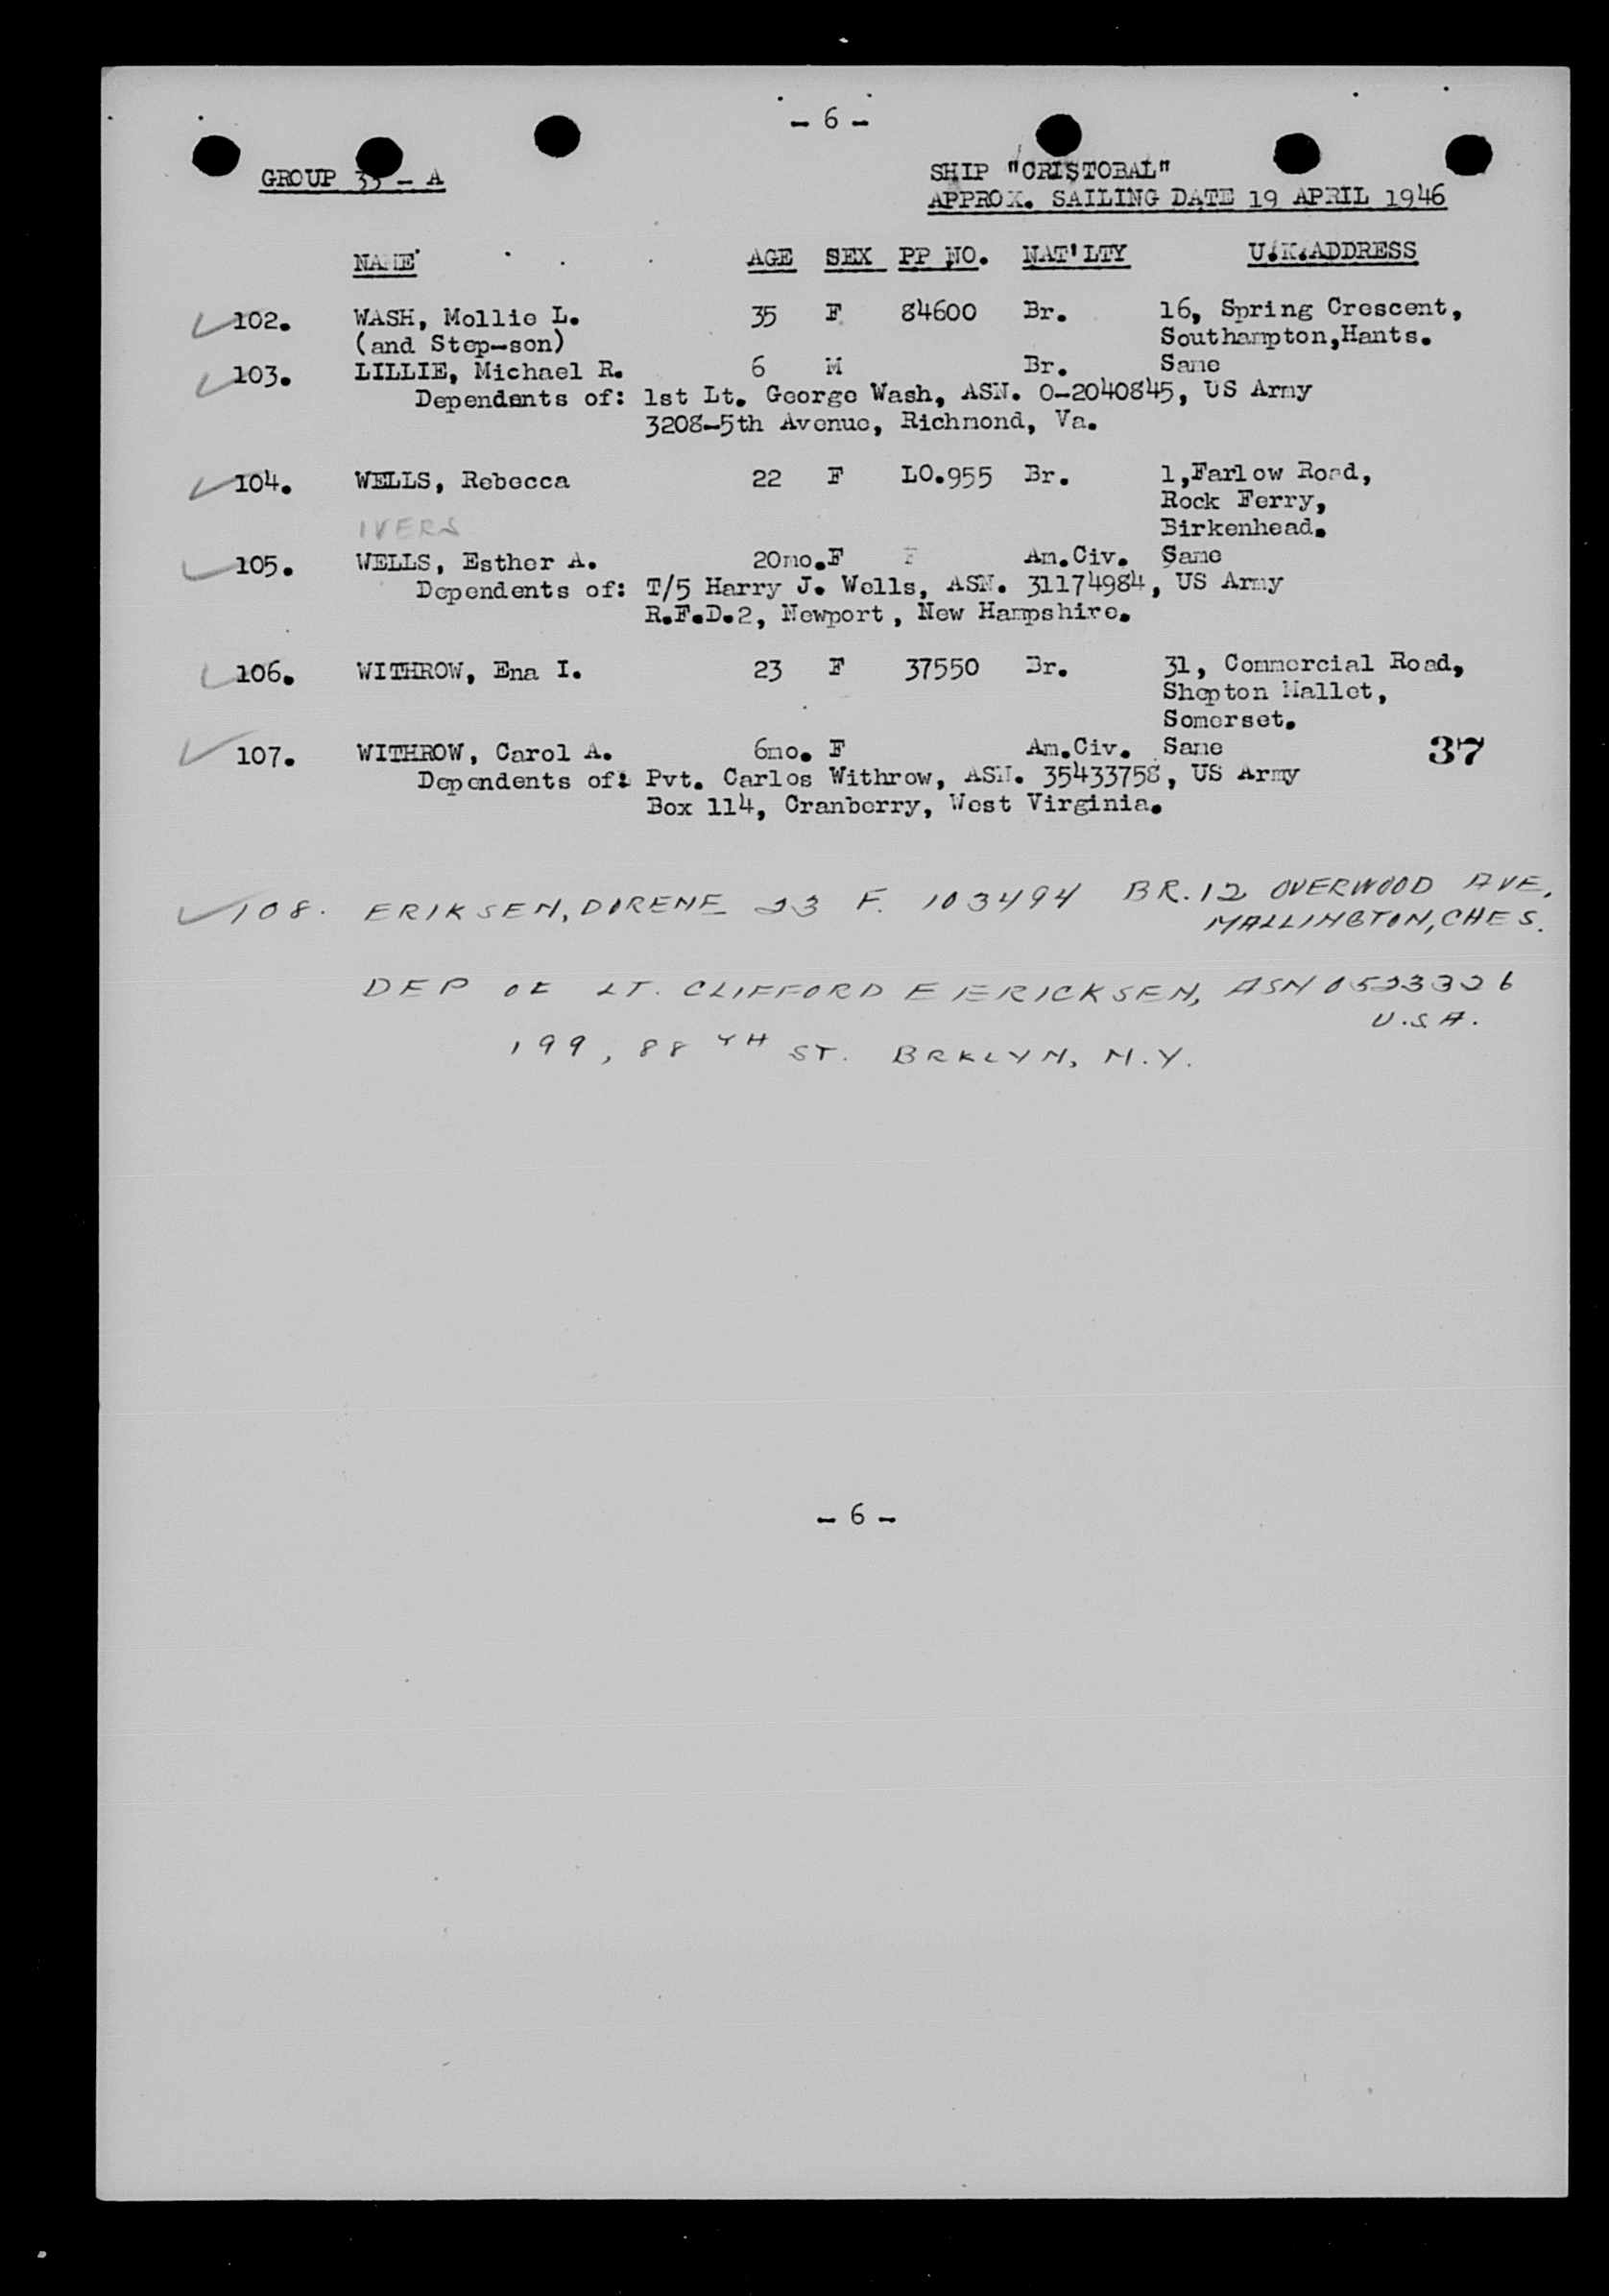 - 6 -
GROUP 33 - A
SHIP "CRISTOBAL"
APPROX. SAILING DATE 19 APRIL 1946
NAME AGE SEX PP NO. NAT'LTY U.K.ADDRESS
102. WASH, Mollie L. 35 F 84600 Br. 16, Spring Crescent,
(and Step-son) Southampton,Hants.
103. LILLIE, Michael R. 6 M Br. Same
Dependents of: 1st Lt. George Wash, ASN. O-2040845, US Army
3208-5th Avenue, Richmond, Va.
104. WELLS, Rebecca 22 F LO.955 Br. 1,Farlow Road,
Rock Ferry,
IVERS Birkenhead.
105. WELLS, Esther A. 20mo.F F Am.Civ. Same
Dependents of: T/5 Harry J. Wells, ASN. 31174984, US Army
R.F.D.2, Newport, New Hampshire.
106. WITHROW, Ena I. 23 F 37550 Br. 31, Commercial Road,
Shepton Mallet,
Somerset.
107. WITHROW, Carol A. 6mo. F Am.Civ. Same 37
Dependents of: Pvt. Carlos Withrow, ASN. 35433758, US Army
Box 114, Cranberry, West Virginia.
108. ERIKSEN, DORENE 23 F. 103494 BR. 12 OVERWOOD AVE,
MALLINGTON, CHES.
DEP OF LT. CLIFFORD E ERICKSEN, ASN 0523326
U.S.A.
199, 88 TH ST. BRKLYN, N.Y.
- 6 -